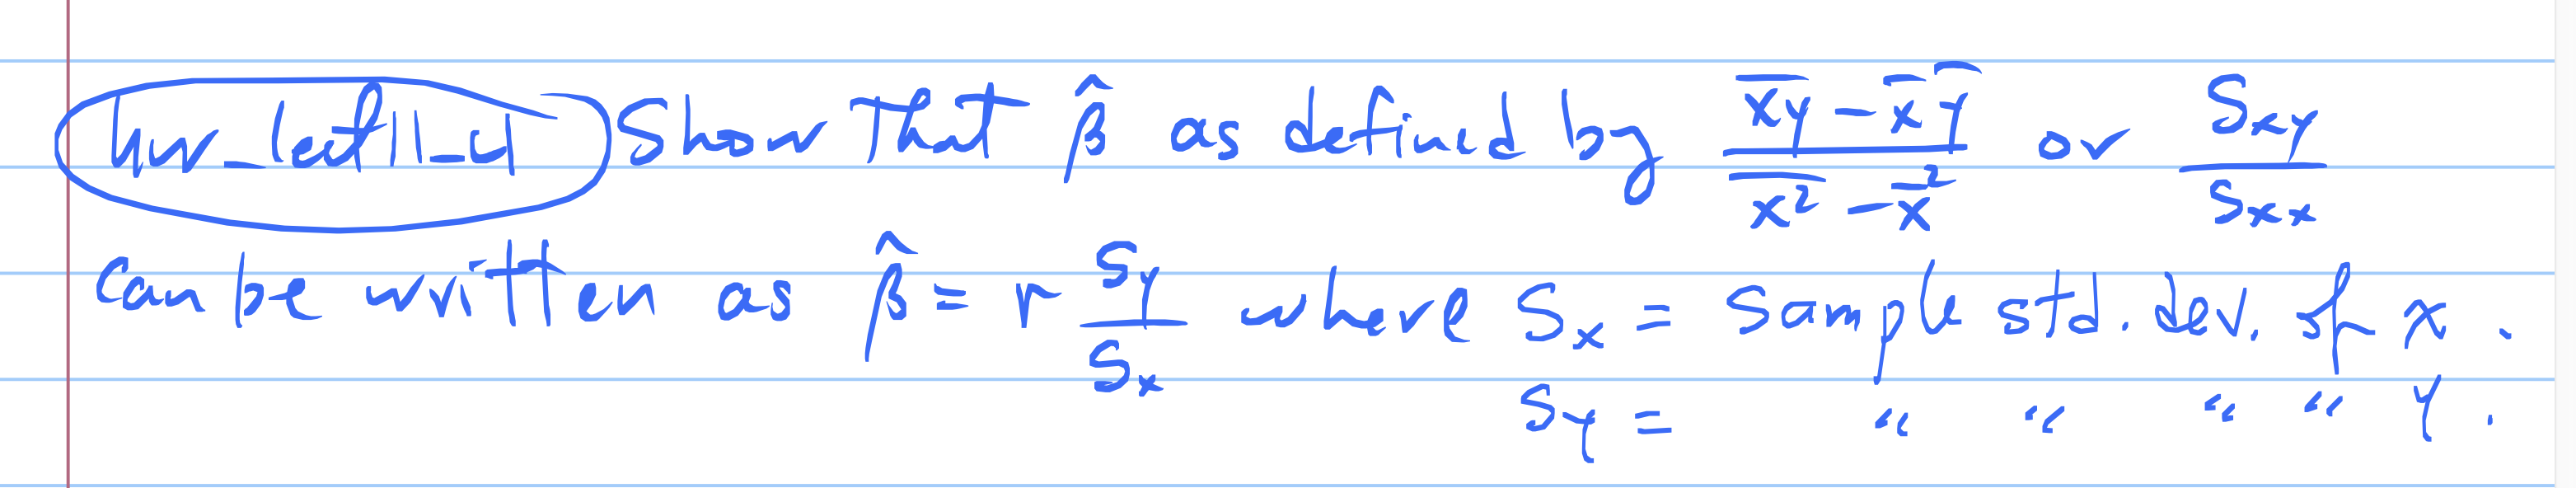 hw_lect11_4 Show That β̂ as defined by (x̄y̅ - x̄ ȳ)/(x̅²̅ - x̄²) or Sxy/Sxx
Can be written as β̂ = r Sy/Sx where Sx = Sample std. dev. of x.
Sy = " " " " y.